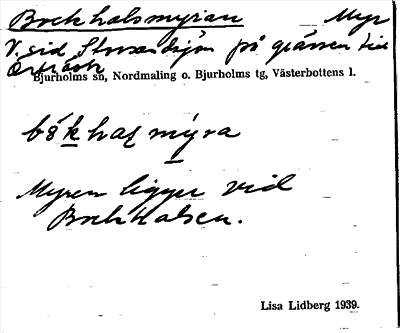 Bockhalsmyran Myr
V. sid Storsandsjön på gränsen till
Örträsk
Bjurholms sn, Nordmaling o. Bjurholms tg, Västerbottens l.
båkhalmýra
Myren ligger vid
Bockhalsen.
Lisa Lidberg 1939.